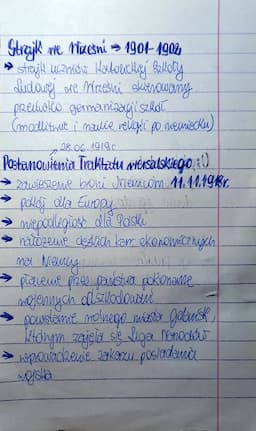 Strajk we Wrześni → 1901-1902
→ strajk uczniów Katolickiej Szkoły
Ludowej we Wrześni skierowany
przeciwko germanizacji szkół
(modlitwie i nauce religii po niemiecku)
28.06.1919r
Postanowienia Traktatu wersalskiego:
→ zawieszenie broni Niemcom 11.11.1918r.
→ pokój dla Europy
→ niepodległość dla Polski
→ nałożenie ciężkich kar ekonomicznych
na Niemcy
→ płacenie przez państwa pokonane
wojennych odszkodowań
→ powstanie wolnego miasta Gdańsk,
którym zajęła się Liga Narodów
→ wprowadzenie zakazu posiadania
wojska